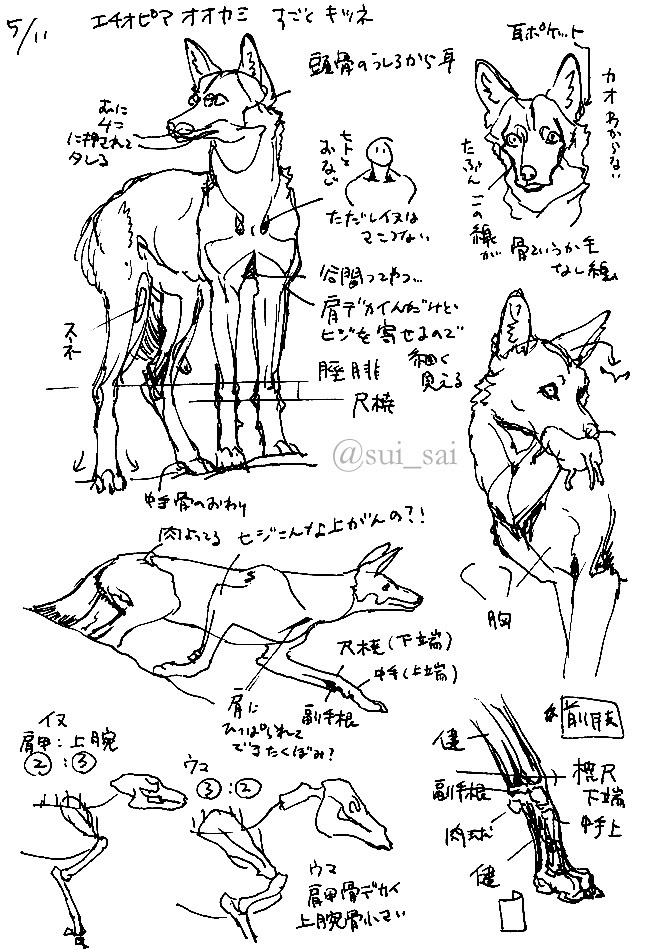 5/11
エチオピアオオカミ すごくキツネ
頭骨のうしろから耳
耳ポケット
カオわからない
に押されて
タレる
ヒトと
おなじ
ただしイヌは
たぶん この線が
骨というか毛
なし線
谷間ってやつ…
肩デカイんだけど
ヒジを寄せるので
細く
見える
スネ
脛腓
尺橈
@sui_sai
中手骨のおわり
肉よってる
ヒジこんな上がんの?!
胸
尺橈(下端)
中手(上端)
副手根
肩に
ひっぱられて
できたくぼみ?
イヌ
肩甲:上腕
②:③
ウマ
③:②
ウマ
肩甲骨デカイ
上腕骨小さい
前肢
健
橈尺
下端
副手根
中手上
肉球
健